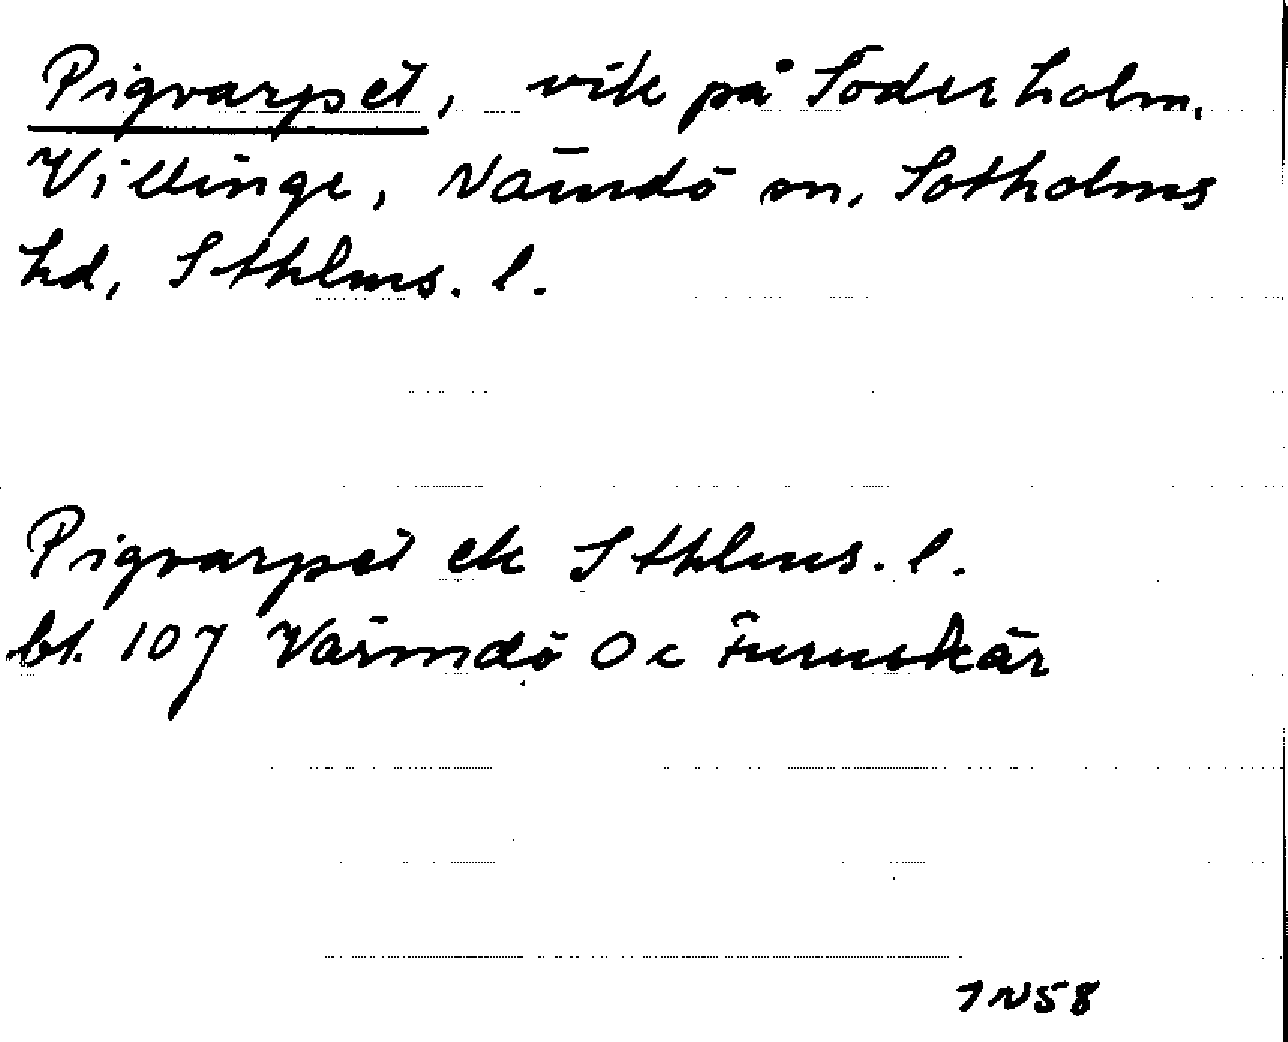 Pigvarpet, vik på Söderholm,
Villinge, Nämdö sn, Sotholms
hd, Sthlms. l.
Pigvarpet ek Sthlms. l.
bl. 107 Värmdö Oc Furuskär
7N58